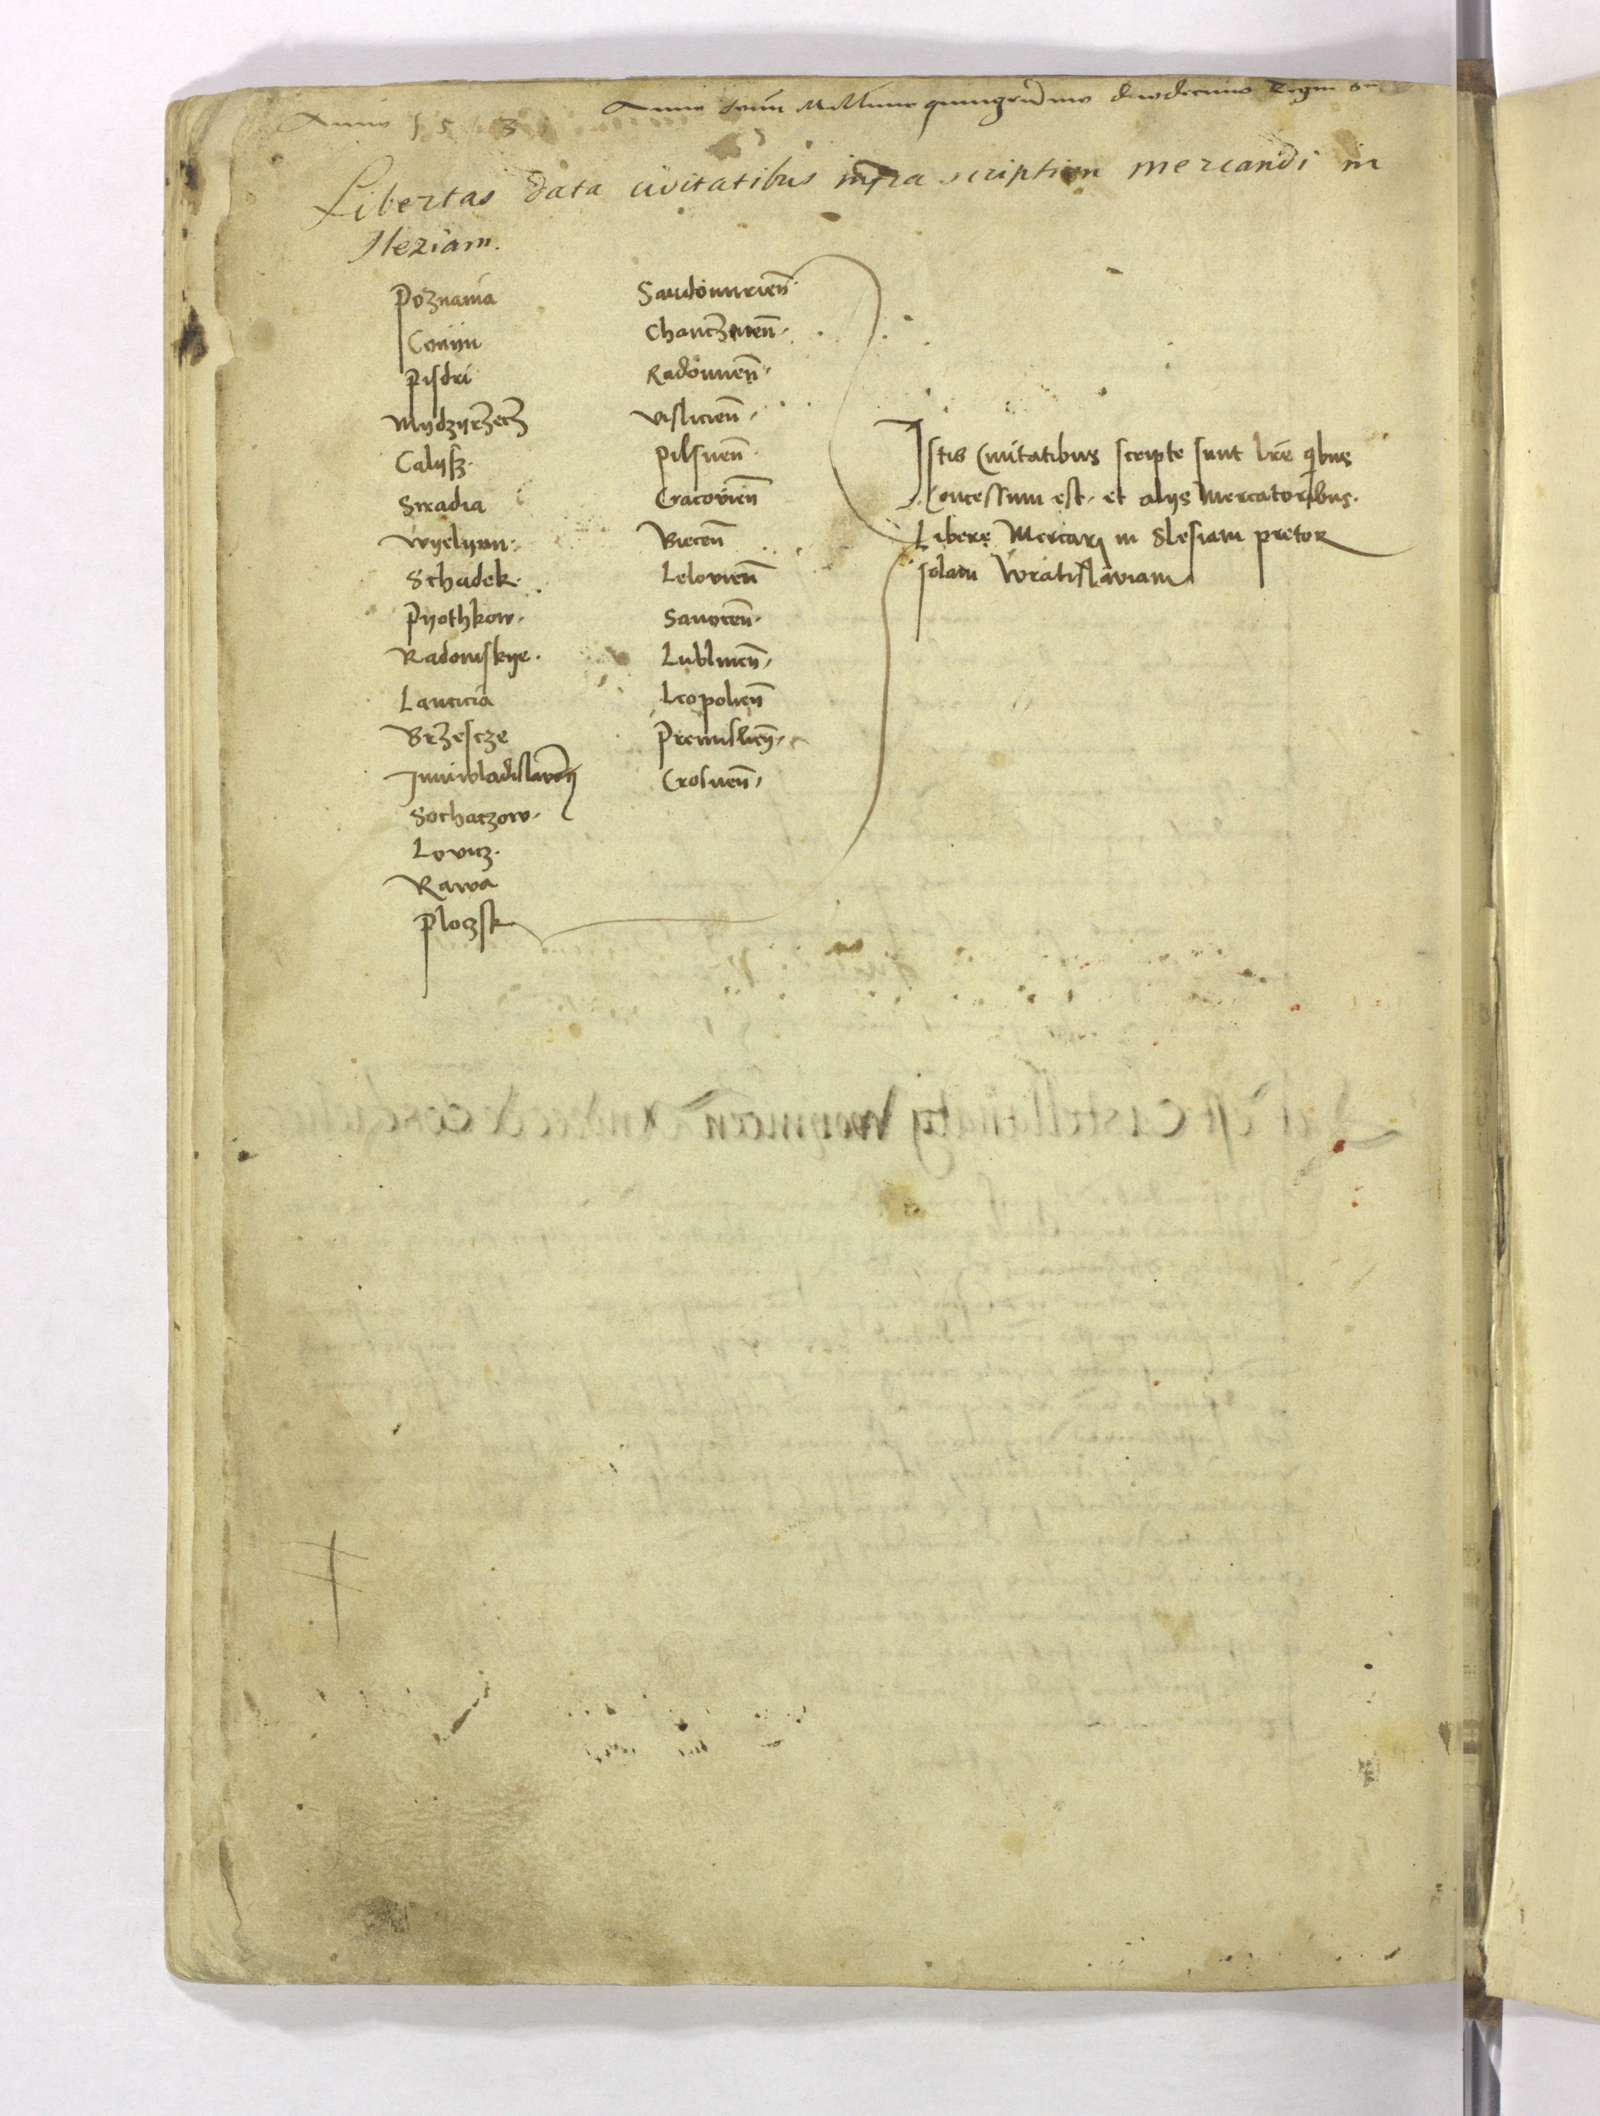 Anno 15 3
Anno domi Millimo quingentmo duodecimo Regni
Libertas data civitatibus infra scriptien mercandi in
Sleziam.
Poznania
Conijn
Pisdri
Mijdzijrzecz
Calijsz.
Siradia
Wyelijun.
Schadek.
Pijothkow.
Radomskije.
Lancicia
Brzescze
Juniwladislavien
Sochaczow.
Lovicz.
Rawa
Ploczsk
Sandomirien.
Chanczinen.
Radomien.
Vislicien.
Pilsnen.
Cracovien
Biecen
Lelovien
Sanocen.
Lublinen.
Leopolien
Premislien.
Crosnen.
Istis Civitatibus scripte sunt lre qbus
Concessum est. et alijs Mercatoribus.
Libere Mercari in Slesiam pretor
solam Wratislaviam